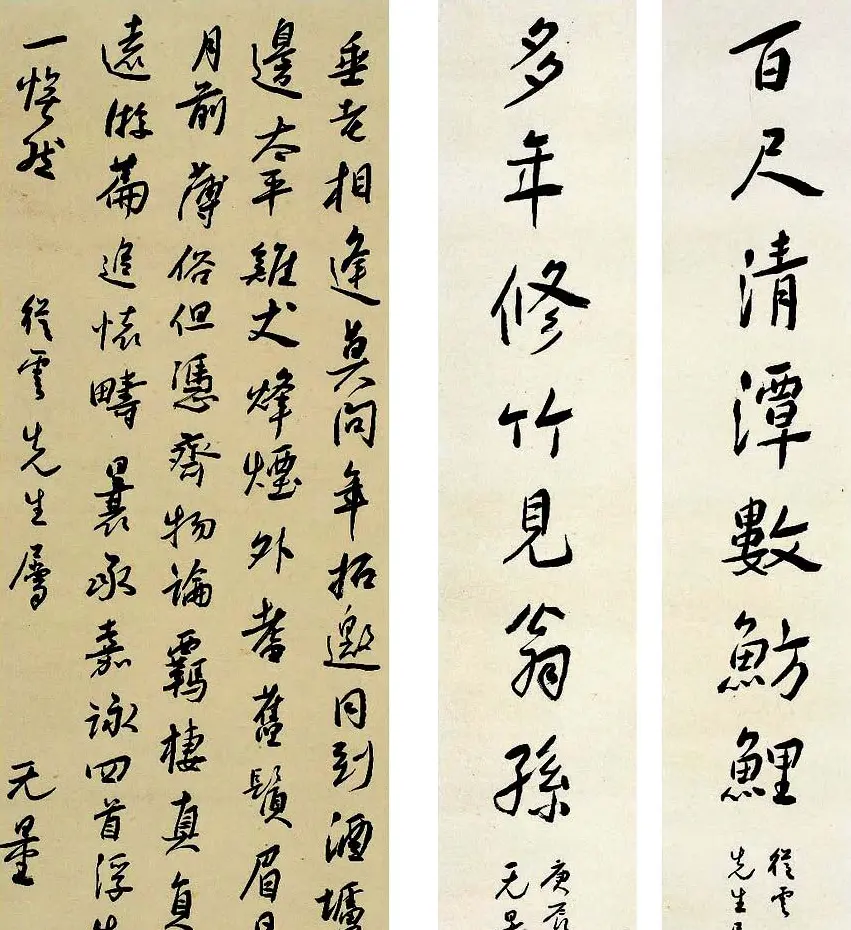 百尺清潭數魴鯉
從雲
先生
多年修竹見翁孫
庚辰
无量
垂老相逢莫問年招邀同到酒壚
邊太平雞犬烽煙外耆舊鬢眉日
月前薄俗但憑齊物論羈棲真負
遠游篇追懷疇曩承嘉詠四首浮生
一慨然
從雲先生屬
无量